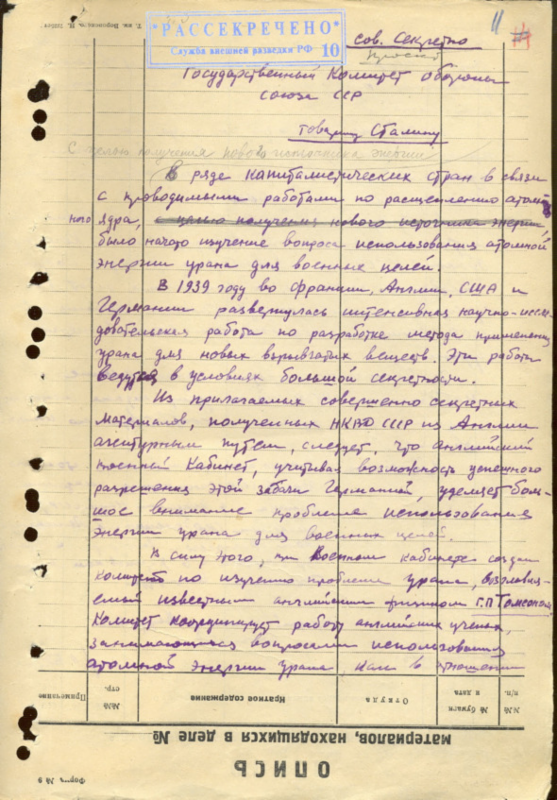 "РАССЕКРЕЧЕНО"
Служба внешней разведки РФ 10
11
сов. Секретно
Государственный Комитет Обороны
Союза ССР
товарищу Сталину
С целью получения нового источника энергии
В ряде капиталистических стран в связи
с проводимыми работами по расщеплению атом
ного ядра, с целью получения нового источника энергии
было начато изучение вопроса использования атомной
энергии урана для военных целей.
В 1939 году во Франции, Англии, США и
Германии развернулась интенсивная научно-иссле-
довательская работа по разработке метода применения
урана для новых взрывчатых веществ. Эти работы
ведутся в условиях большой секретности.
Из прилагаемых совершенно секретных
материалов, полученных НКВД СССР из Англии
агентурным путем, следует, что английский
Военный Кабинет, учитывая возможность успешного
разрешения этой задачи Германией, уделяет боль-
шое внимание проблеме использования
энергии урана для военных целей.
В силу этого, при Военном кабинете создан
комитет по изучению проблемы урана, возглавля-
емый известным английским физиком Г.П. Томсоном.
Комитет координирует работу английских ученых,
занимающихся вопросами использования
атомной энергии урана как в отношении
Примечание
№№ стр.
Краткое содержание
Откуда
№ бумаги и дата
№№ п/п.
материалов, находящихся в деле №
ОПИСЬ
Форма № 9